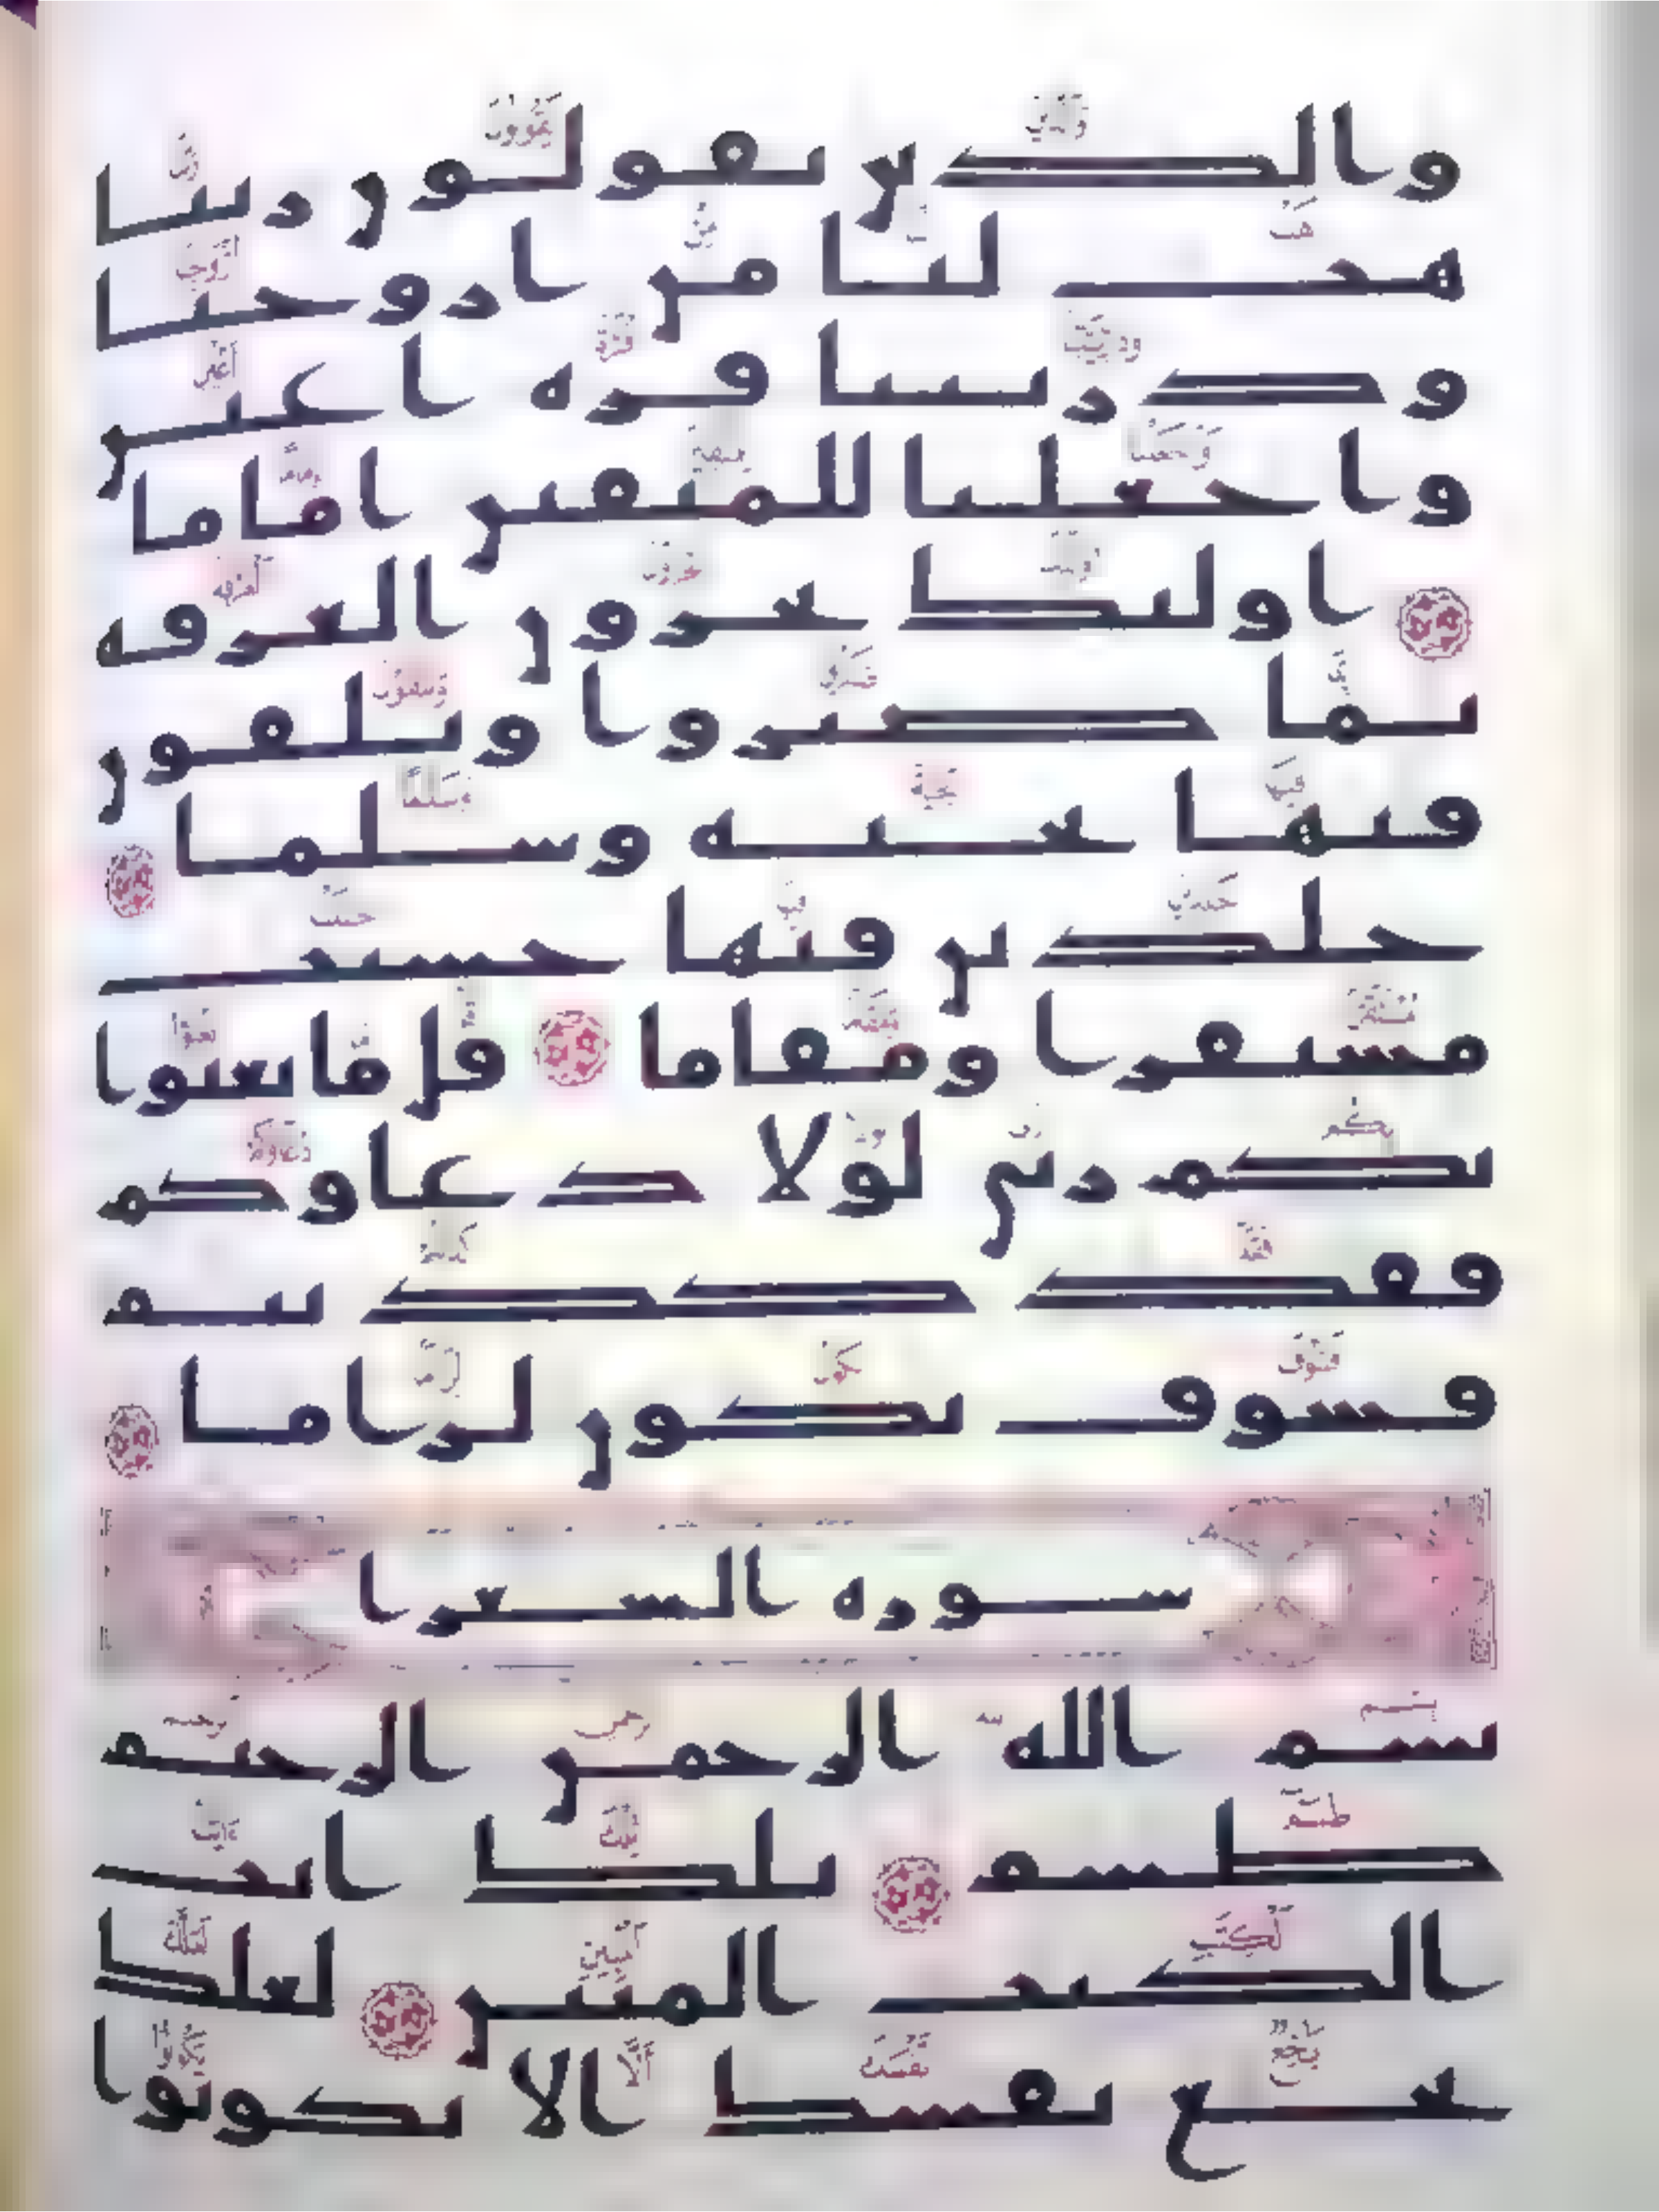 والذين يقولون ربنا
هب لنا من ازوجنا
وذريتنا قره اعين
واجعلنا للمتقين اماما
اولئك يجزون الغرفه
بما صبروا ويلقون
فيها تحيه وسلما
خلدين فيها حسنت
مستقرا ومقاما قل ما يعبوا
بكم ربي لولا دعاوكم
فقد كذبتم
فسوف يكون لزاما
سوره الشعرا
بسم الله الرحمن الرحيم
طسم تلك ايت
الكتب المبين لعلك
بخع نفسك الا يكونوا